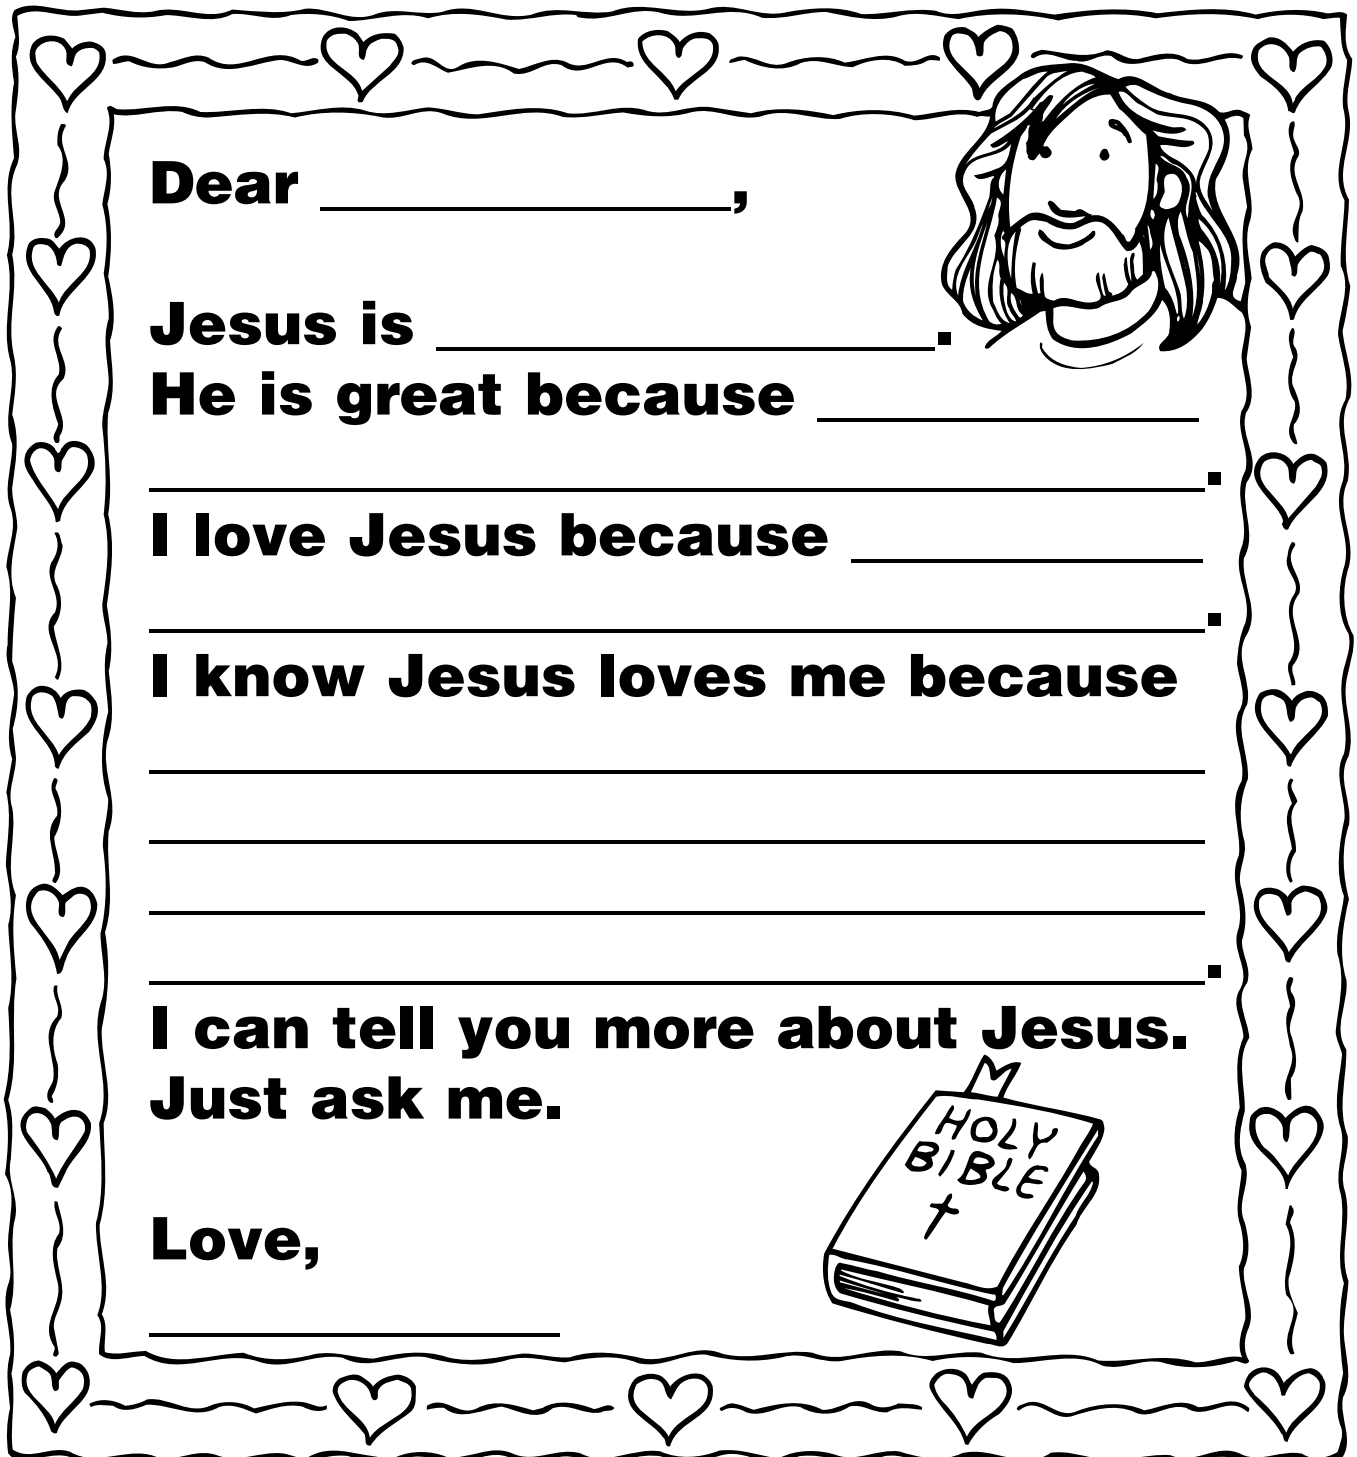 Dear ____________,
Jesus is ______________.
He is great because ___________
______________________________.
I love Jesus because __________
______________________________.
I know Jesus loves me because
______________________________
______________________________
______________________________
______________________________.
I can tell you more about Jesus.
Just ask me.
HOLY
BIBLE
Love,
____________